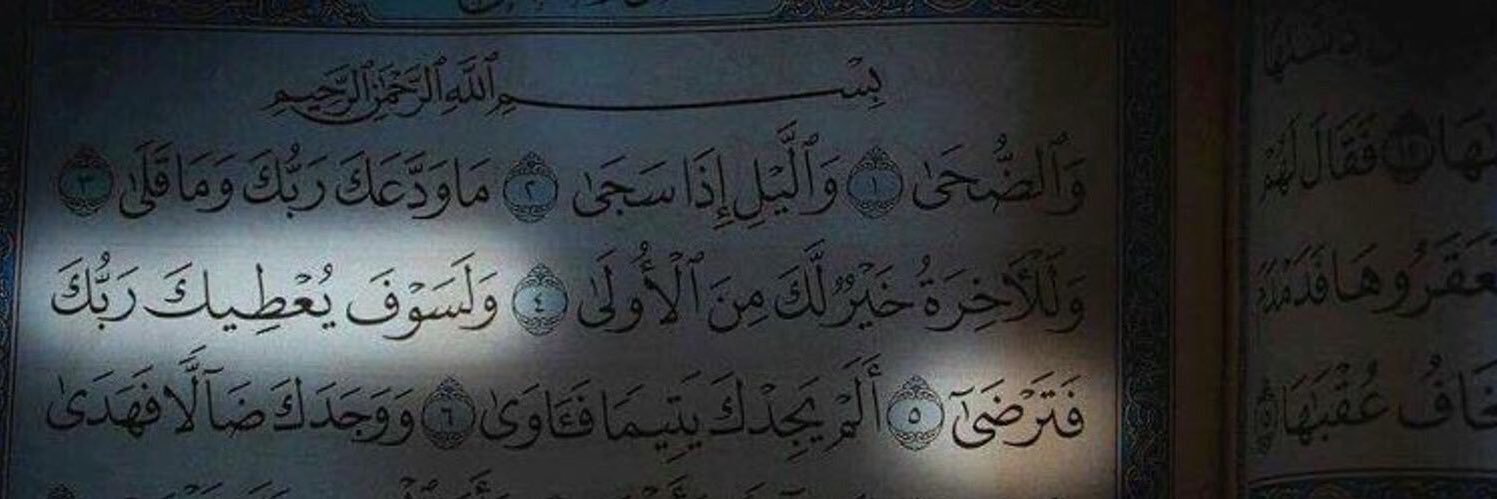 بِسْمِ ٱللَّهِ ٱلرَّحْمَٰنِ ٱلرَّحِيمِ
وَٱلضُّحَىٰ ١ وَٱلَّيْلِ إِذَا سَجَىٰ ٢ مَا وَدَّعَكَ رَبُّكَ وَمَا قَلَىٰ ٣
وَلَلْأَخِرَةُ خَيْرٌ لَّكَ مِنَ ٱلْأُولَىٰ ٤ وَلَسَوْفَ يُعْطِيكَ رَبُّكَ
فَتَرْضَىٰٓ ٥ أَلَمْ يَجِدْكَ يَتِيمًا فَـَٔاوَىٰ ٦ وَوَجَدَكَ ضَآلًّا فَهَدَىٰ
فَقَالَ لَهُمْ
فَعَقَرُوهَا فَدَمْدَمَ
يَخَافُ عُقْبَٰهَا